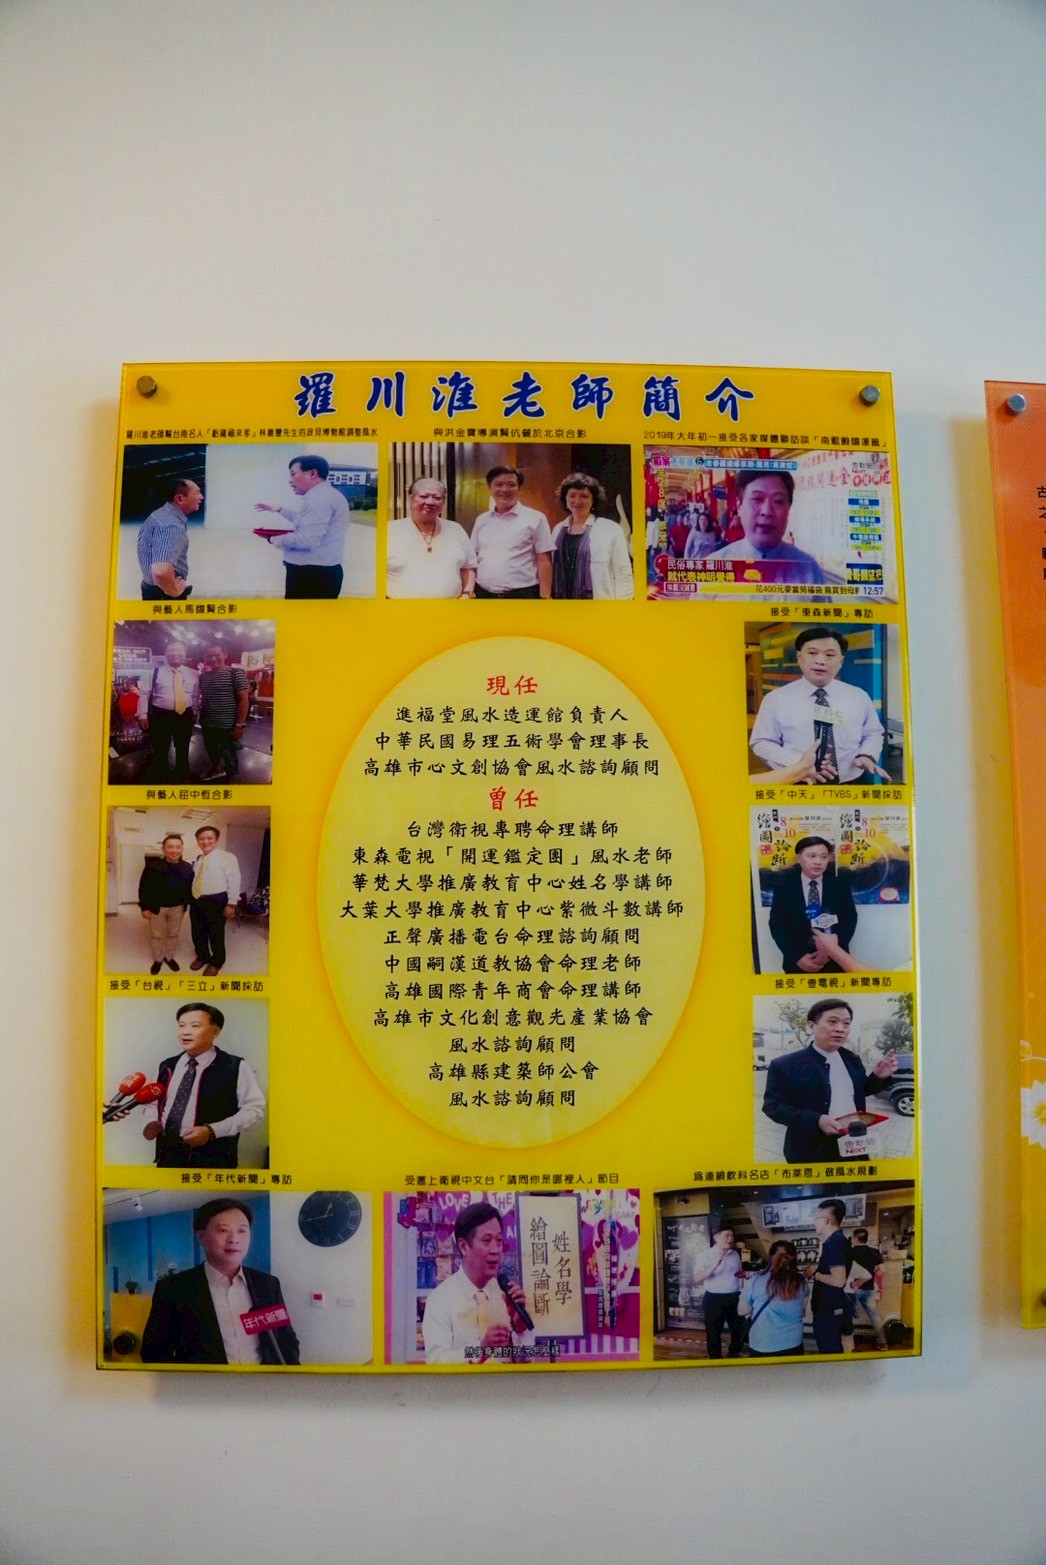 羅川淮老師簡介
與洪金寶導演賢伉儷於北京合影
2019年大年初一接受各家媒體聯訪談「南鯤鯓擋運籤」
民俗專家 羅川淮
就代表神明覺得
12:57
與藝人馬國賢合影
接受「東森新聞」專訪
現任
進福堂風水造運館負責人
中華民國易理五術學會理事長
高雄市心文創協會風水諮詢顧問
曾任
台灣衛視專聘命理講師
東森電視「開運鑑定團」風水老師
華梵大學推廣教育中心姓名學講師
大葉大學推廣教育中心紫微斗數講師
正聲廣播電台命理諮詢顧問
中國嗣漢道教協會命理老師
高雄國際青年商會命理講師
高雄市文化創意觀光產業協會
風水諮詢顧問
高雄縣建築師公會
風水諮詢顧問
與藝人屈中恆合影
接受「中天」「TVBS」新聞採訪
繪圖論斷
繪圖論斷
接受「台視」「三立」新聞採訪
接受「壹電視」新聞專訪
NEXT
接受「年代新聞」專訪
受邀上衛視中文台「請問你是哪裡人」節目
為連鎖飲料名店「布萊恩」做風水規劃
年代新聞
姓名學
繪圖論斷
然後身體的狀況怎麼樣
古
之